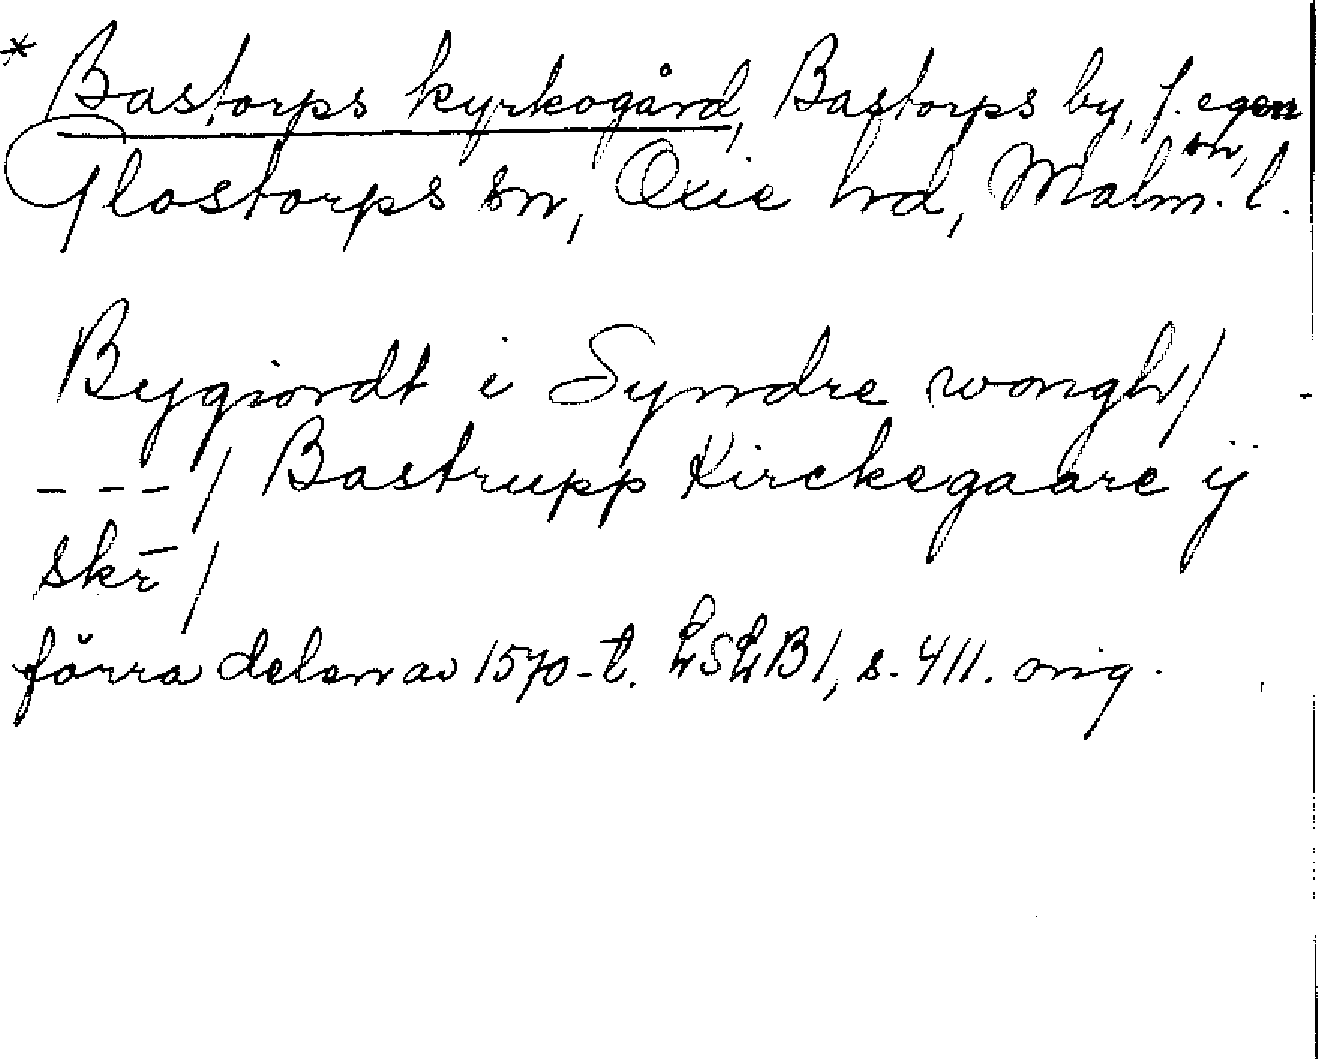 * Bastorps kyrkogård, Bastorps by, f. egen sn,
Glostorps sn, Oxie hd, Malm. l.
Bygiordt i Syndre wongh/ -
- - -/ Bastrupp Kirckegaare ij
skr̄/
förra delen av 1570-t. LSLB1, s. 411. orig.